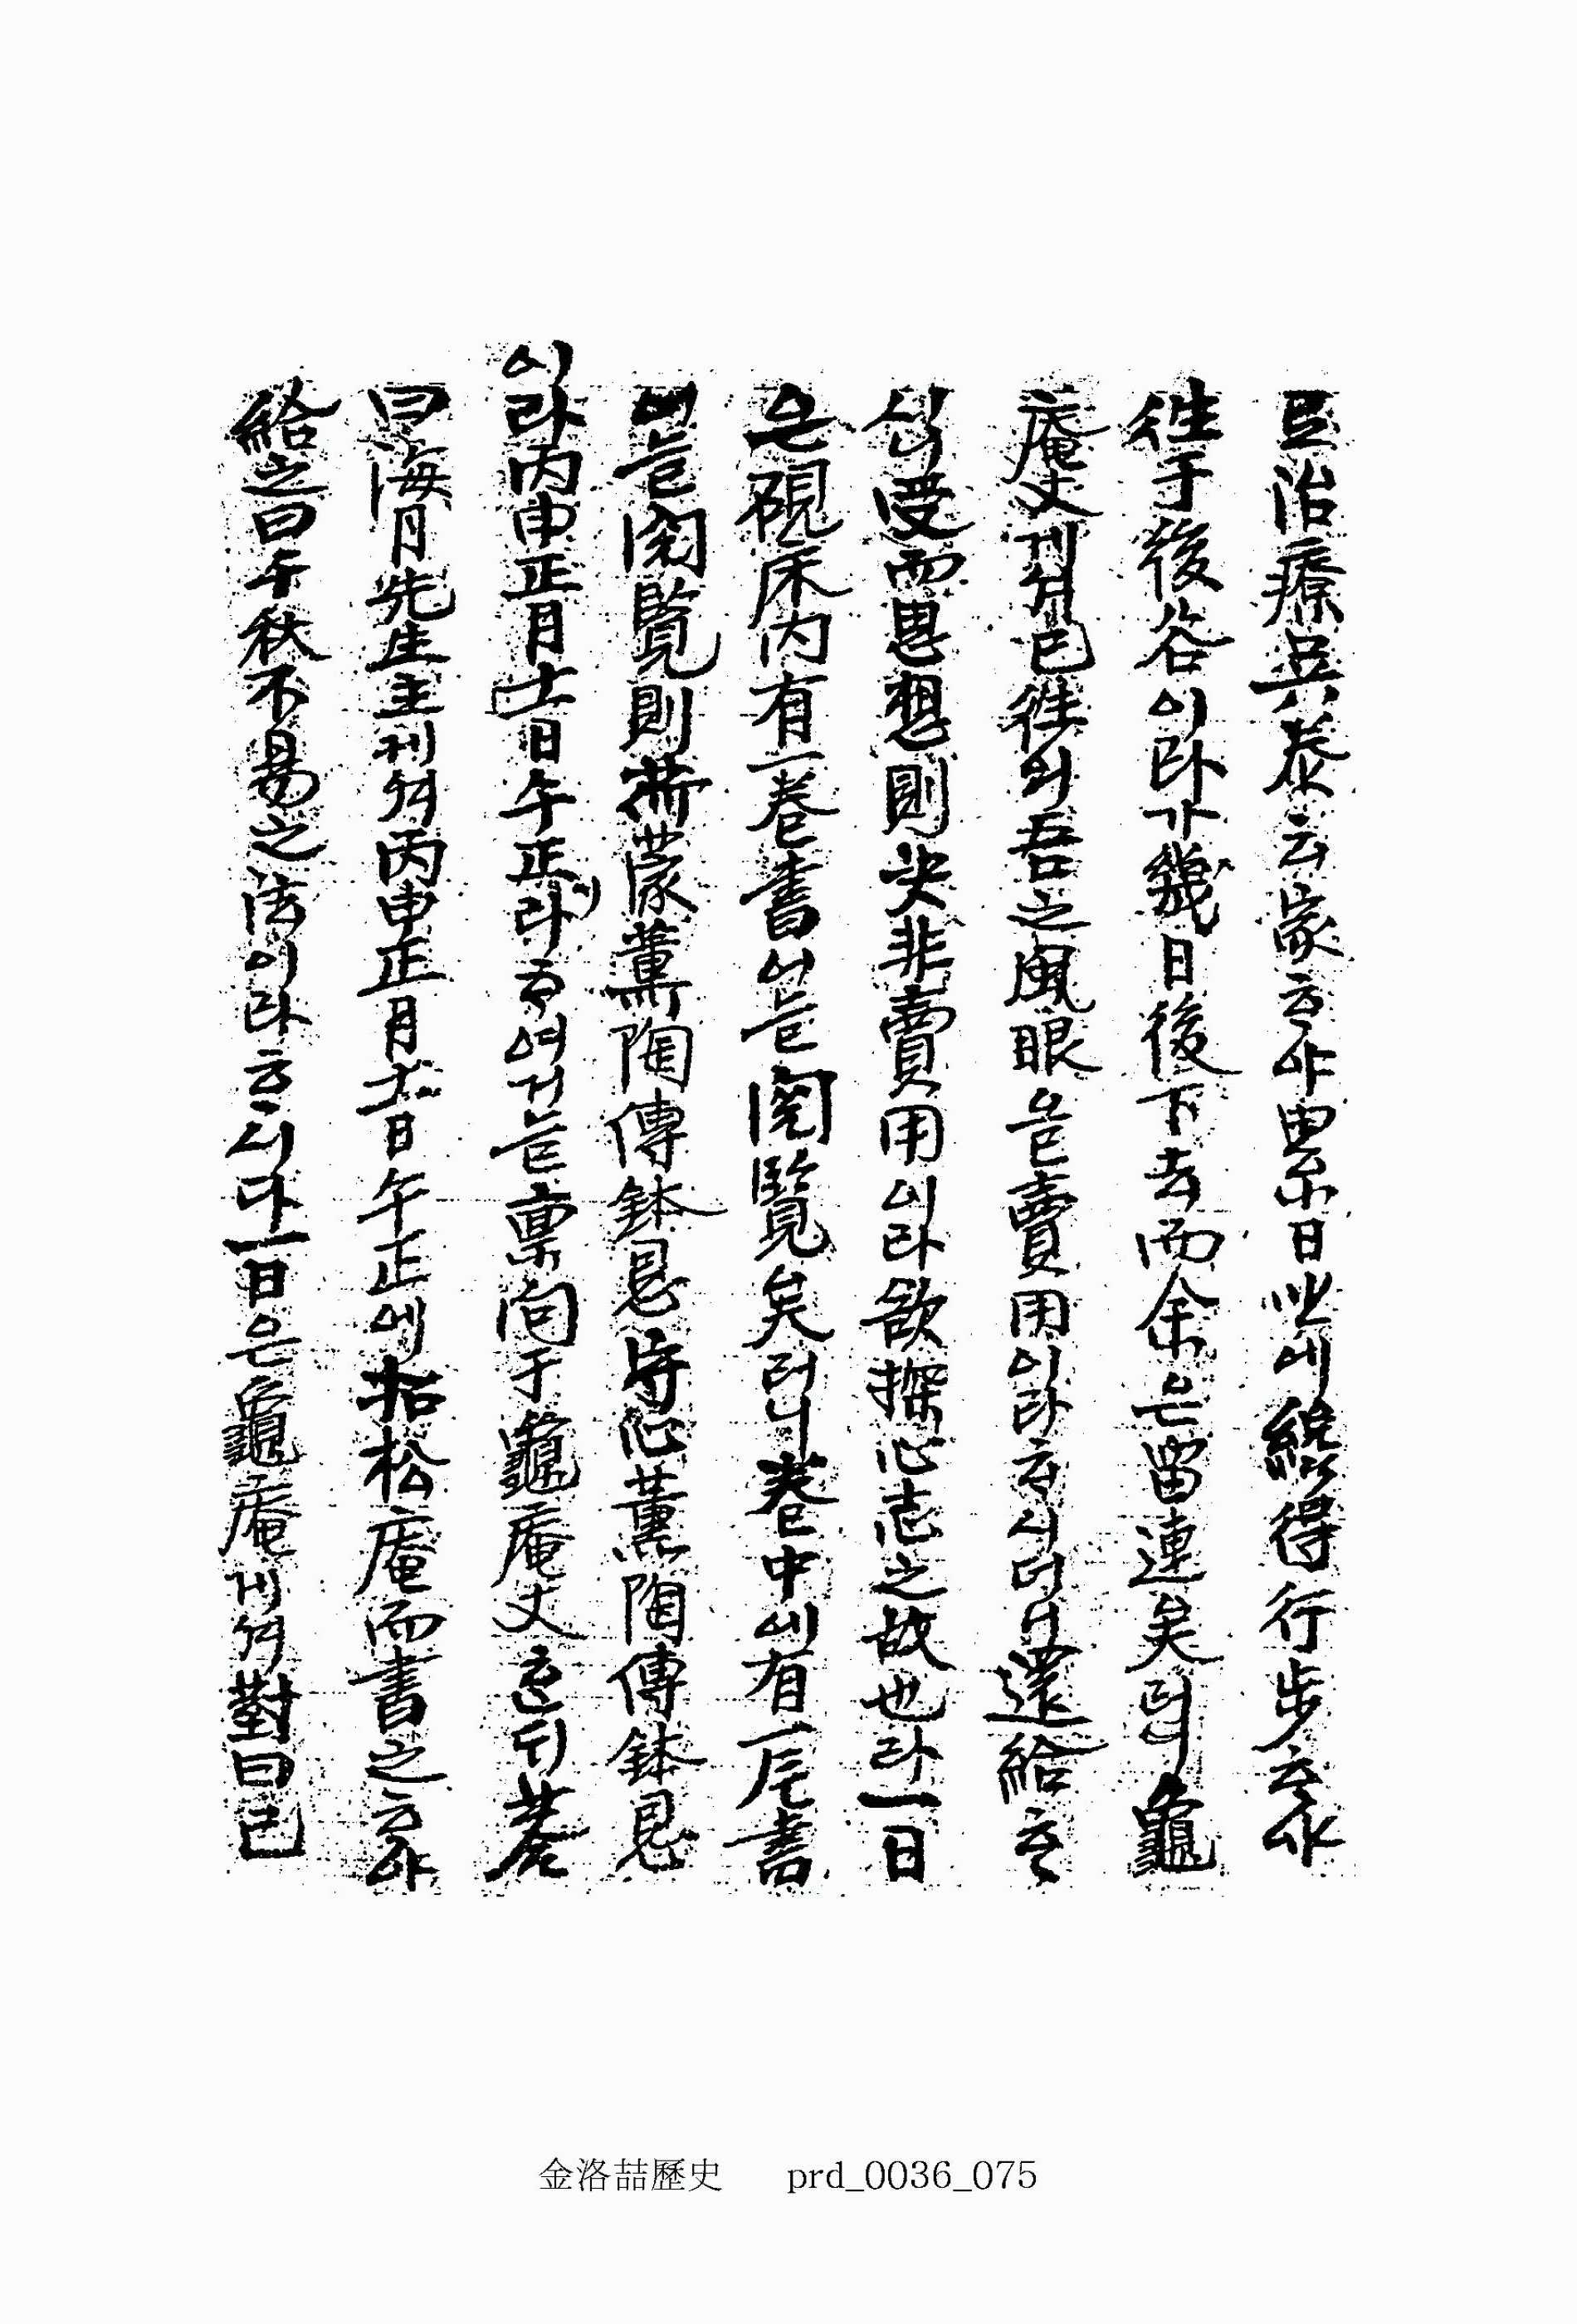 且治療兵恭云家ᄒᆞ야累日만에總得行步ᄒᆞ야
徃于後谷이라가幾日後下去而余은留連矣러니龜
庵丈게셔已徃의吾之風眼을賣用이라ᄒᆞ시더니還給ᄒᆞ
심受而思想則决非賣用이라欲探心志之故也라一日
은硯床内有一卷書이늘閲覽矣러니卷中에有一片書
이늘閲覽則薰陶傳鉢恩守心薰陶傳鉢恩
이라丙申正月十一日午正라ᄒᆞ여거늘稟問于龜庵丈ᄒᆞᆫᄃᆡ答
曰海月先生主게셔丙申正月十一日午正에招松庵而書之ᄒᆞ야
給之曰千秋不易之法이라ᄒᆞ시다一日은龜庵게셔對曰已
金洛喆歷史 prd_0036_075